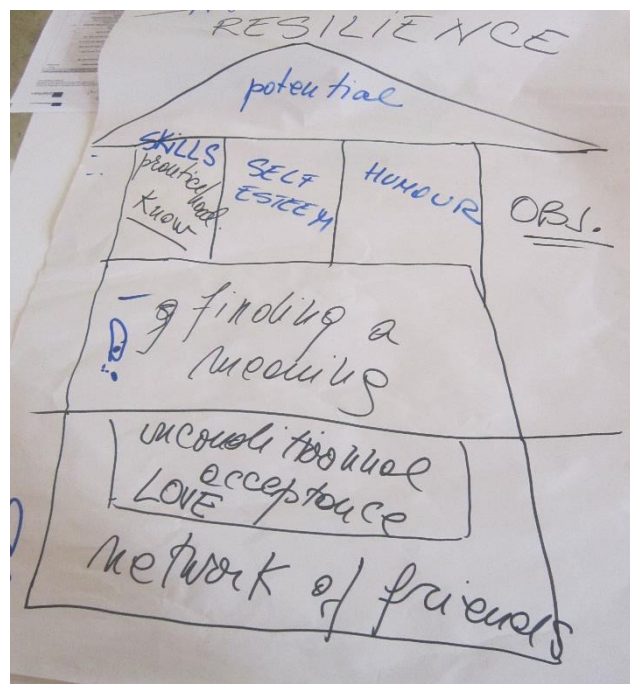 RESILIENCE
potential
SKILLS
know
SELF
ESTEEM
HUMOUR
OBJ.
finding a
meaning
unconditionnal
acceptance
LOVE
network of friends